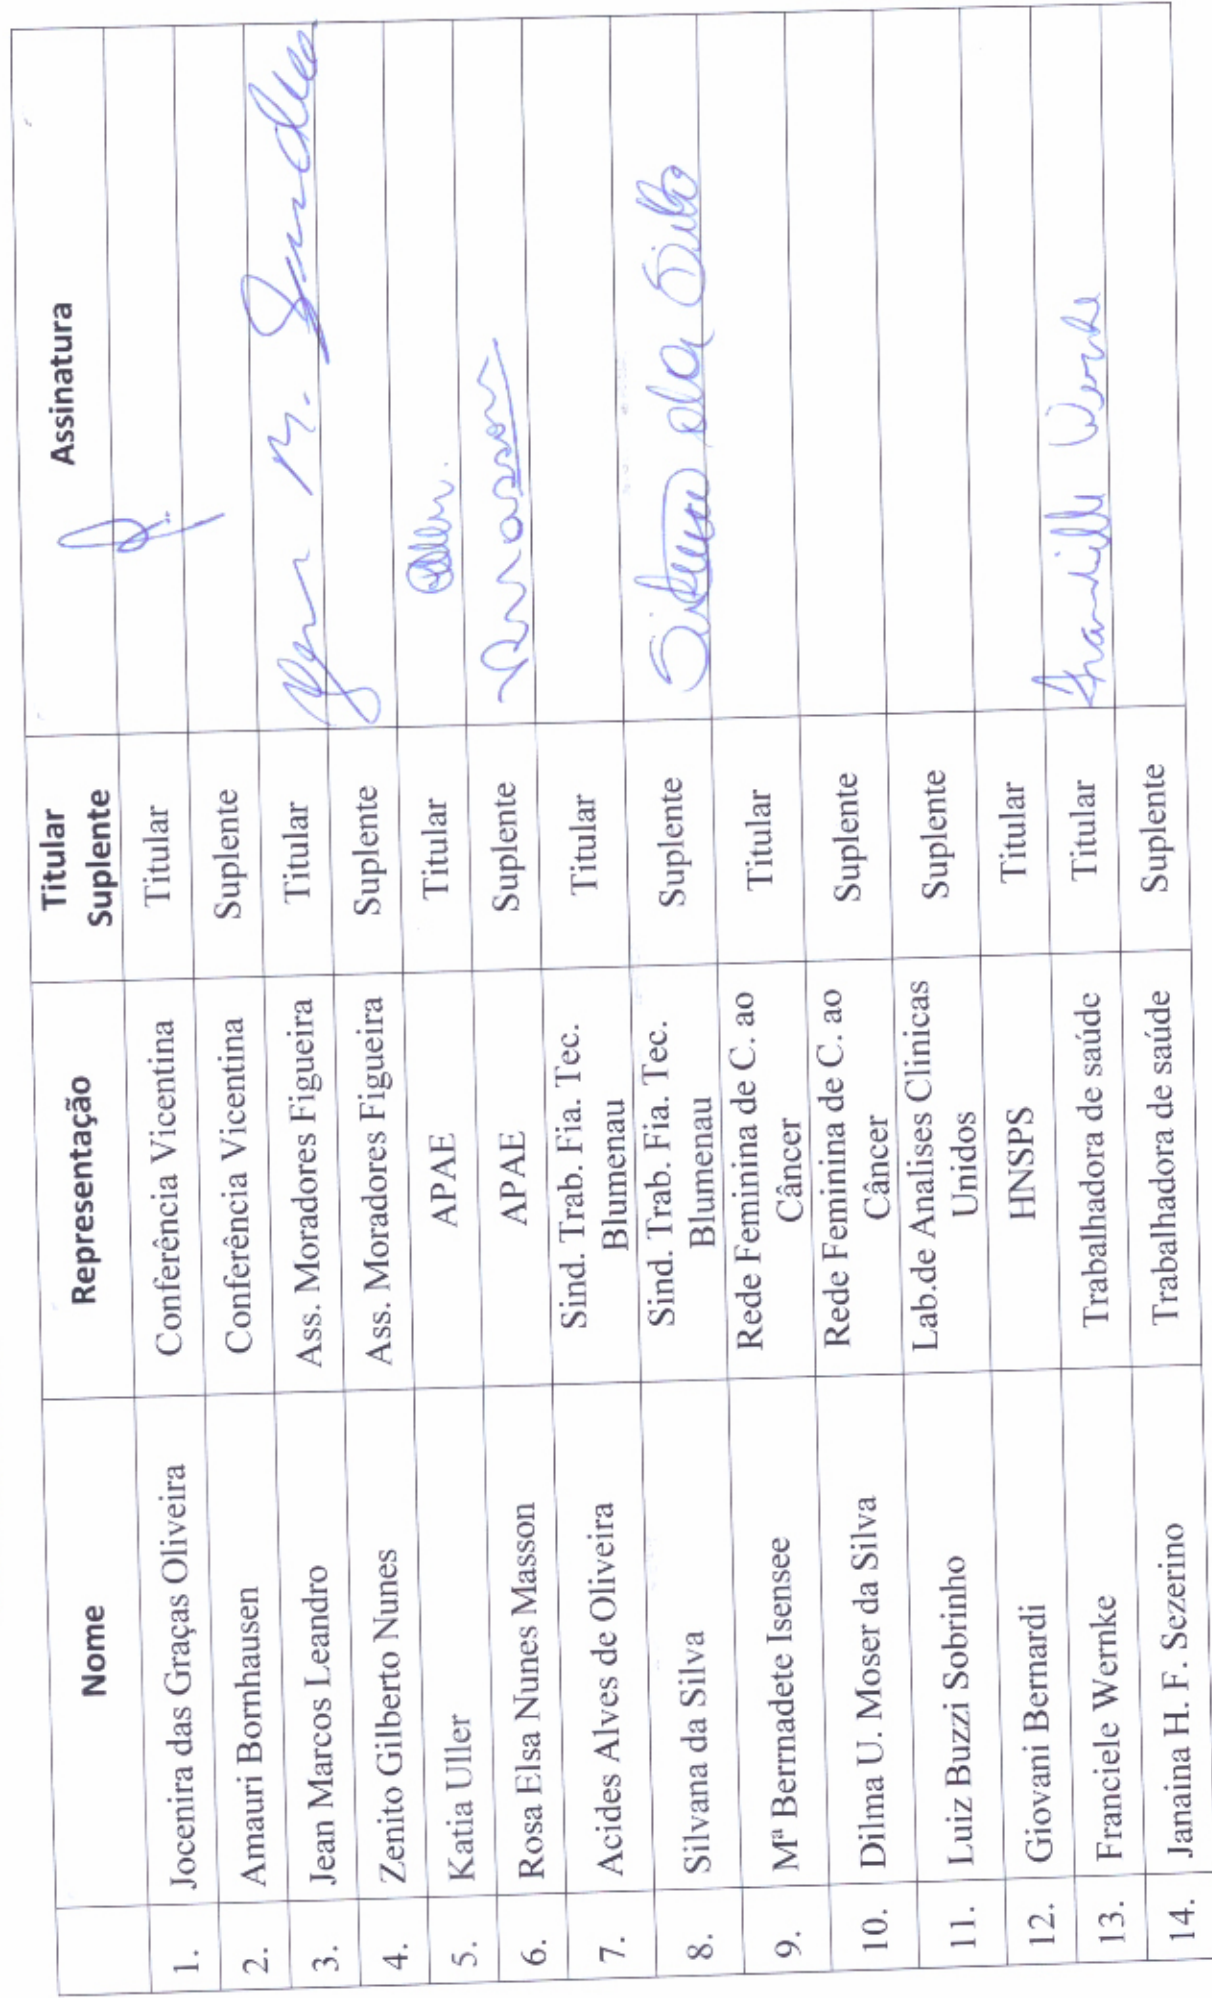 Nome Representação Titular Suplente Assinatura
1. Jocenira das Graças Oliveira Conferência Vicentina Titular
2. Amauri Bornhausen Conferência Vicentina Suplente
3. Jean Marcos Leandro Ass. Moradores Figueira Titular
4. Zenito Gilberto Nunes Ass. Moradores Figueira Suplente
5. Katia Uller APAE Titular
6. Rosa Elsa Nunes Masson APAE Suplente Masson
7. Acides Alves de Oliveira Sind. Trab. Fia. Tec. Blumenau Titular
8. Silvana da Silva Sind. Trab. Fia. Tec. Blumenau Suplente Silvana da Silva
9. Mª Bernadete Isensee Rede Feminina de C. ao Câncer Titular
10. Dilma U. Moser da Silva Rede Feminina de C. ao Câncer Suplente
11. Luiz Buzzi Sobrinho Lab.de Analises Clinicas Unidos Suplente
12. Giovani Bernardi HNSPS Titular
13. Franciele Wernke Trabalhadora de saúde Titular
14. Janaina H. F. Sezerino Trabalhadora de saúde Suplente